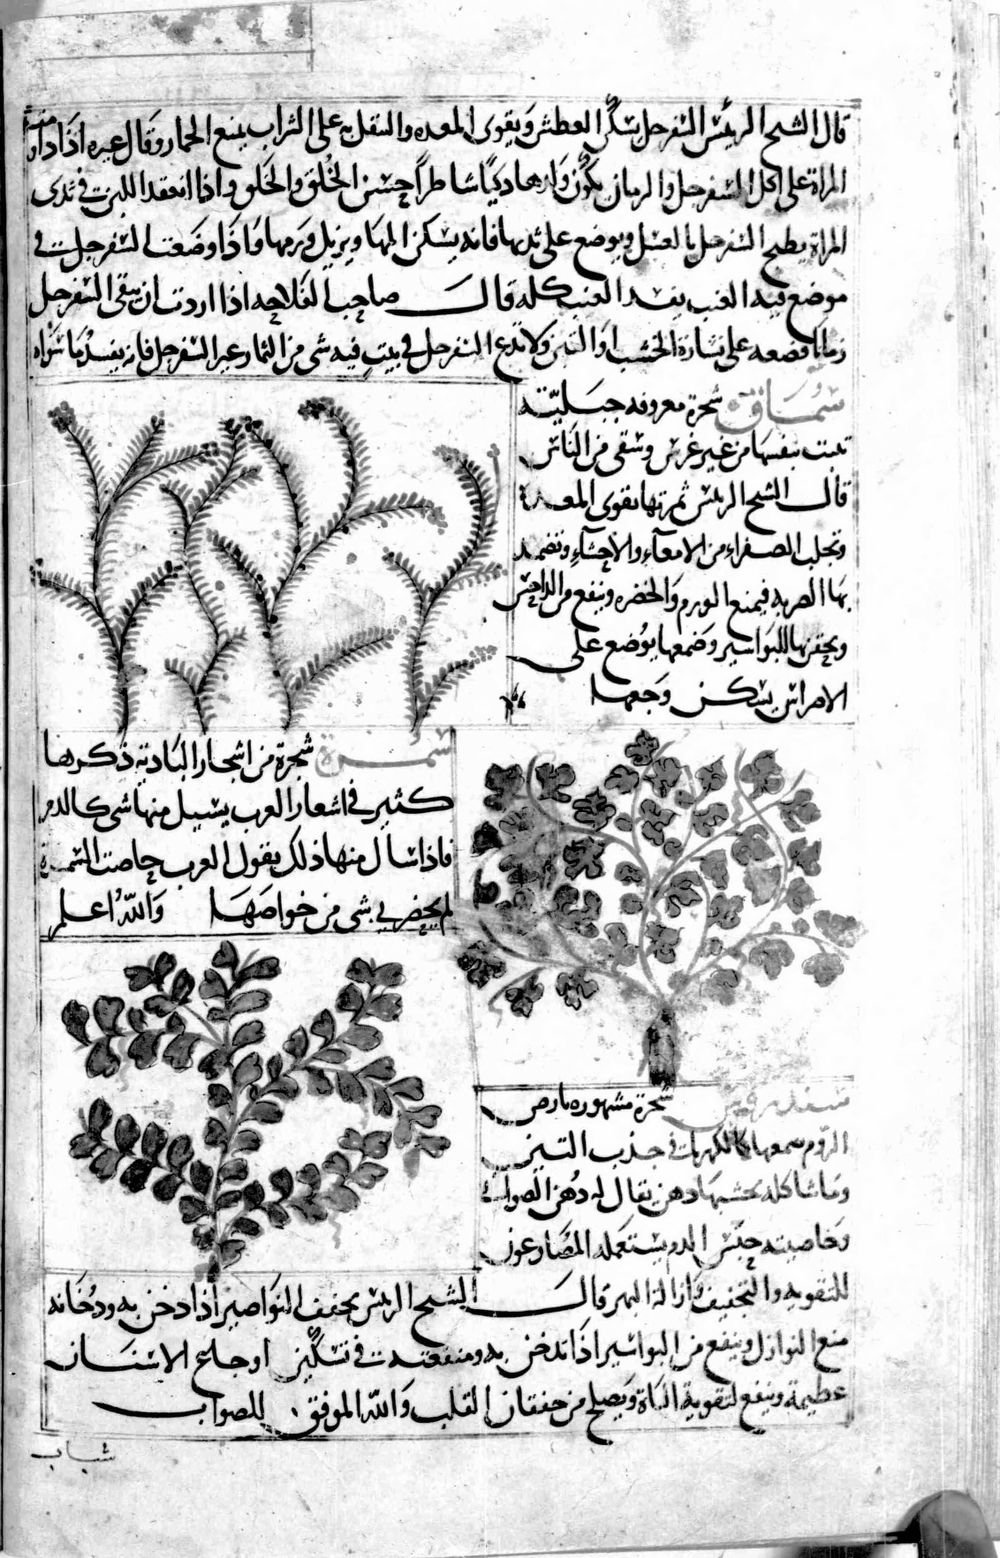 قال الشيخ الرئيس السفرجل يسكن العطش ويقوى المعده والنقل به على الشراب يمنع الخمار وقال غيره اذا داومت
المراة على اكل السفرجل والرمان يكون ولدها ذكيا شاطرا حسن الخُلق والخَلق واذا انعقد اللبن في ثدى
المراة يطبخ السفرجل بالعسل ويوضع على ثديها فانه يسكن المها ويزيل ورمها واذا وضعت السفرجلة في
موضع فيه العنب يفسد العنب كله قال صاحب الفلاحه اذا اردت ان يبقى السفرجل
زمانا فضعه على نشارة الخشب او التبن ولا تدع السفرجل في بيت فيه شى من الثمار غير السفرجل فانه يفسد ما سواه
سماق شجرة معروفه جبليّته
تنبت بنفسها من غير غرس وسقى من الناس
قال الشيخ الرئيس ثمرتها تقوى المعدة
وتجلب الصفراء من الامعآء والاحشآء وتضمد
بها الضربه فيمنع الورم والخضره وينفع من الداحس
ويحقن بها للبواسير وصمغها يوضع على
الاضراس يسكن وجعها
سمرة شجرة من اشجار البادية ذكرها
كثير في اشعار العرب يسيل منها شى كالدم
فاذا سال منها ذلك يقول العرب حاضت السمرة
لم يحضرنى شى من خواصها والله اعلم
سندروس شجرة مشهوره بارض
الروم صمغها كالكهربا في جذب التبن
وما شاكله بخشبها دهن يقال له دهن الصوابى
وخاصيته حبس الدم يستعمله المصارعون
للتقويه والتخفيف وازالة البهر قال الشيخ الرئيس يجفف النواصير اذا دخن به ودخانه
منع النوازل وينفع من البواسير اذا تدخن به ومنفعته في تسكين اوجاع الاسنان
عظيمة وينفع لتقوية الباة ويصلح من خفقان القلب والله الموفق للصواب
شباب